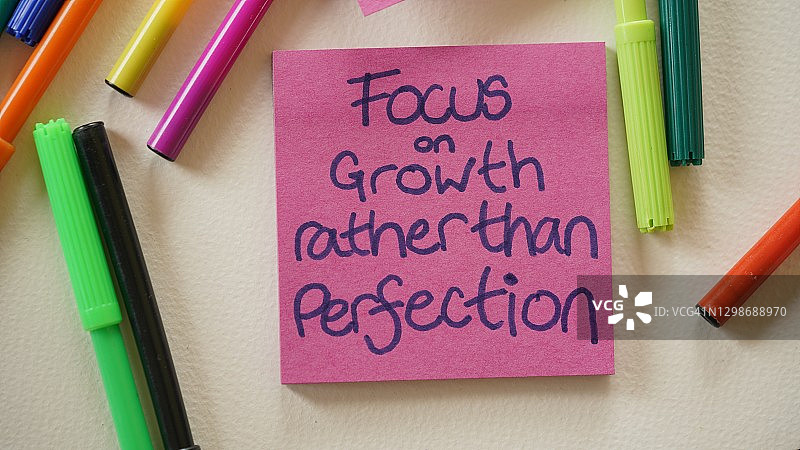 Focus
on
Growth
rather than
Perfection
VCG
ID: VCG41N1298688970